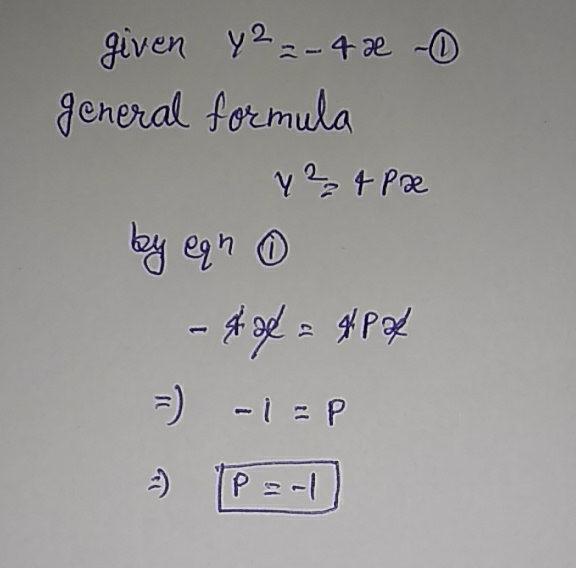 given y² = -4x -①
general formula
y² = 4px
by eqn ①
- 4x = 4px
=) -1 = P
=) P = -1